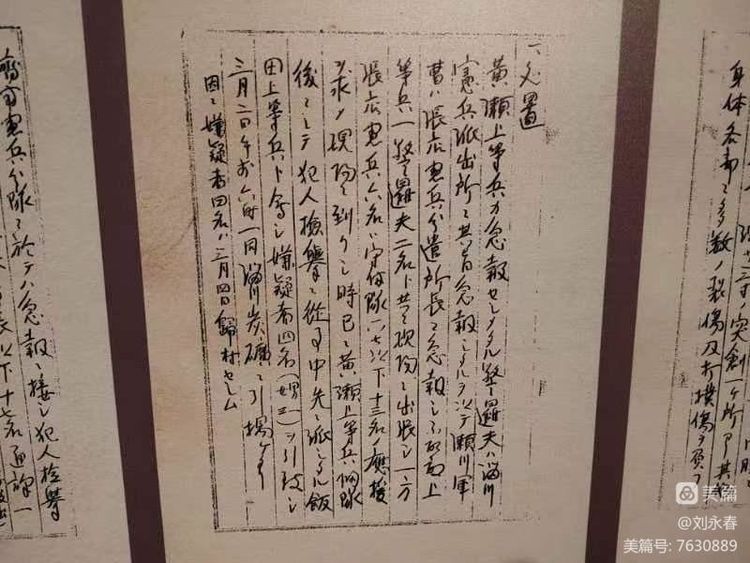 突創一ヶ所アリ其
身体各部ニ多数ノ裂傷及打撲傷ヲ負
一、処置
黄瀬上等兵ガ急報セシメタル警邏夫ハ淄川
憲兵派出所ニ其旨急報シタルヲ以テ瀬川軍
曹ハ張店憲兵分遣所長ニ急報シ上
等兵一、警邏夫二名ト共ニ現場ニ出張シ一方
張店憲兵六名ハ守備隊以下十三名ノ応援
ヲ求メ現場ニ到リシ時已ニ黄瀬上等兵
後ニシテ犯人検挙ニ従事中先ニ派シタル飯
田上等兵ト合シ嫌疑者四名ヲ引致シ
三月二日午前六時一同淄川炭礦ニ引揚ゲタリ
因ニ嫌疑者四名ハ三月四日歸村セシム
濟南憲兵分隊ニ於テハ急報ニ接シ犯人検挙
長以下十七名通訳一
美篇
@刘永春
美篇号: 7630889